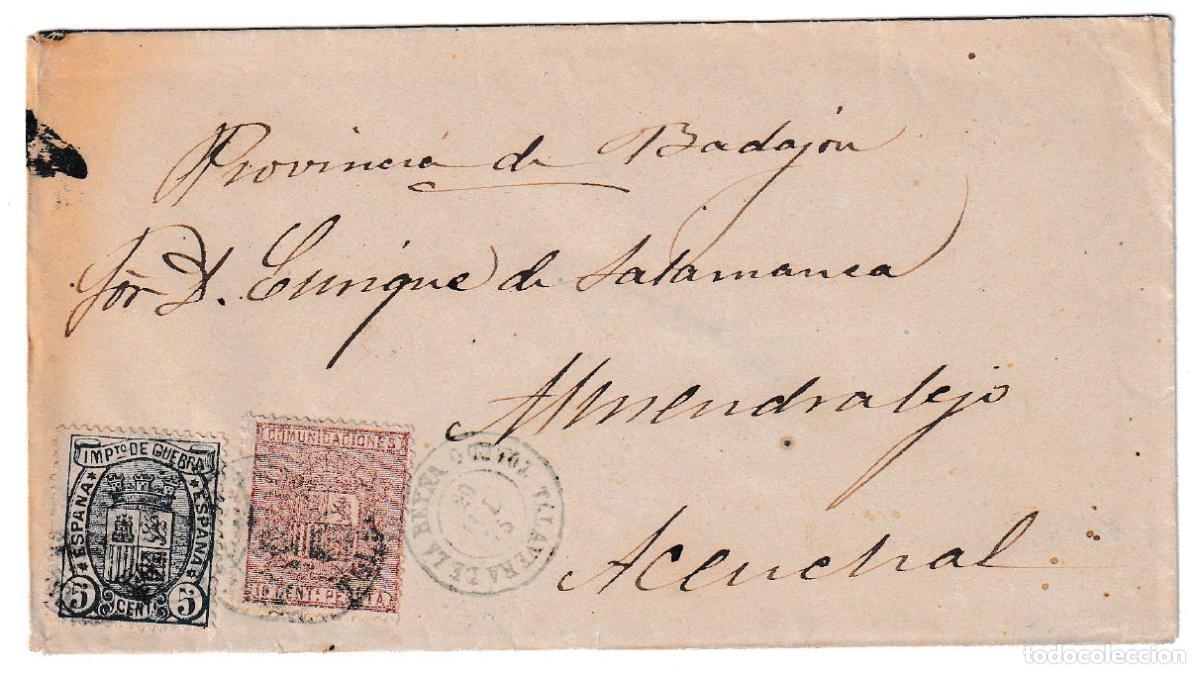 Provincia de Badajoz
Sor D. Enrique de Salamanca
Almendralejo
Aceuchal
COMUNICACIONES
10 CENT. PESETA
IMPTO. DE GUERRA
ESPAÑA
ESPAÑA
5 CENT. 5
TALAVERA DE LA REYNA
TOLEDO
todocoleccion